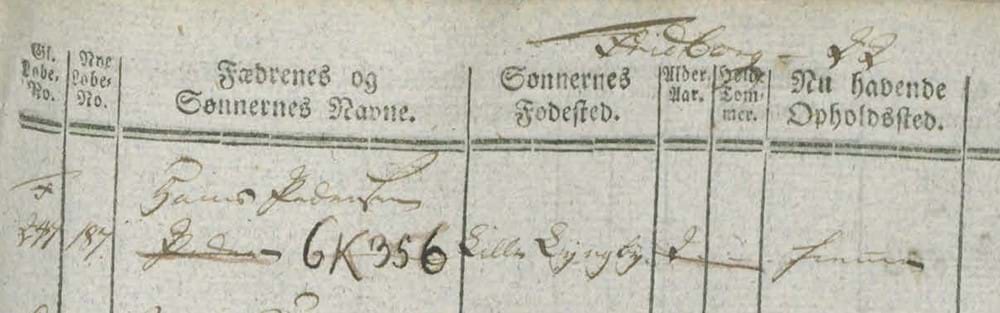 Gl. Løbe. No.
Nye Løbe- No.
Fædrenes og
Sønnernes Navne.
Sønnernes
Fødested.
Alder Aar.
Høide Tom- mer.
Nu havende
Opholdssted.
Hans Pedersen
187. Peder 6K356 Lille Lyngby hiemme